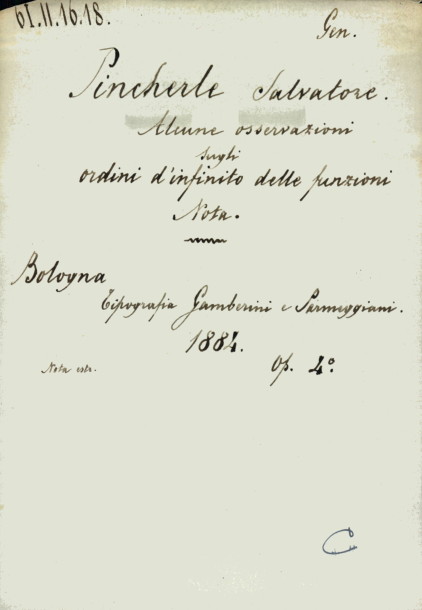 61.II.16.18.
Gen.
Pincherle Salvatore.
Alcune osservazioni
sugli
ordini d'infinito delle funzioni
Nota.
Bologna
Tipografia Gamberini e Parmeggiani.
1884.
Nota estr.
Op. 4°.
C